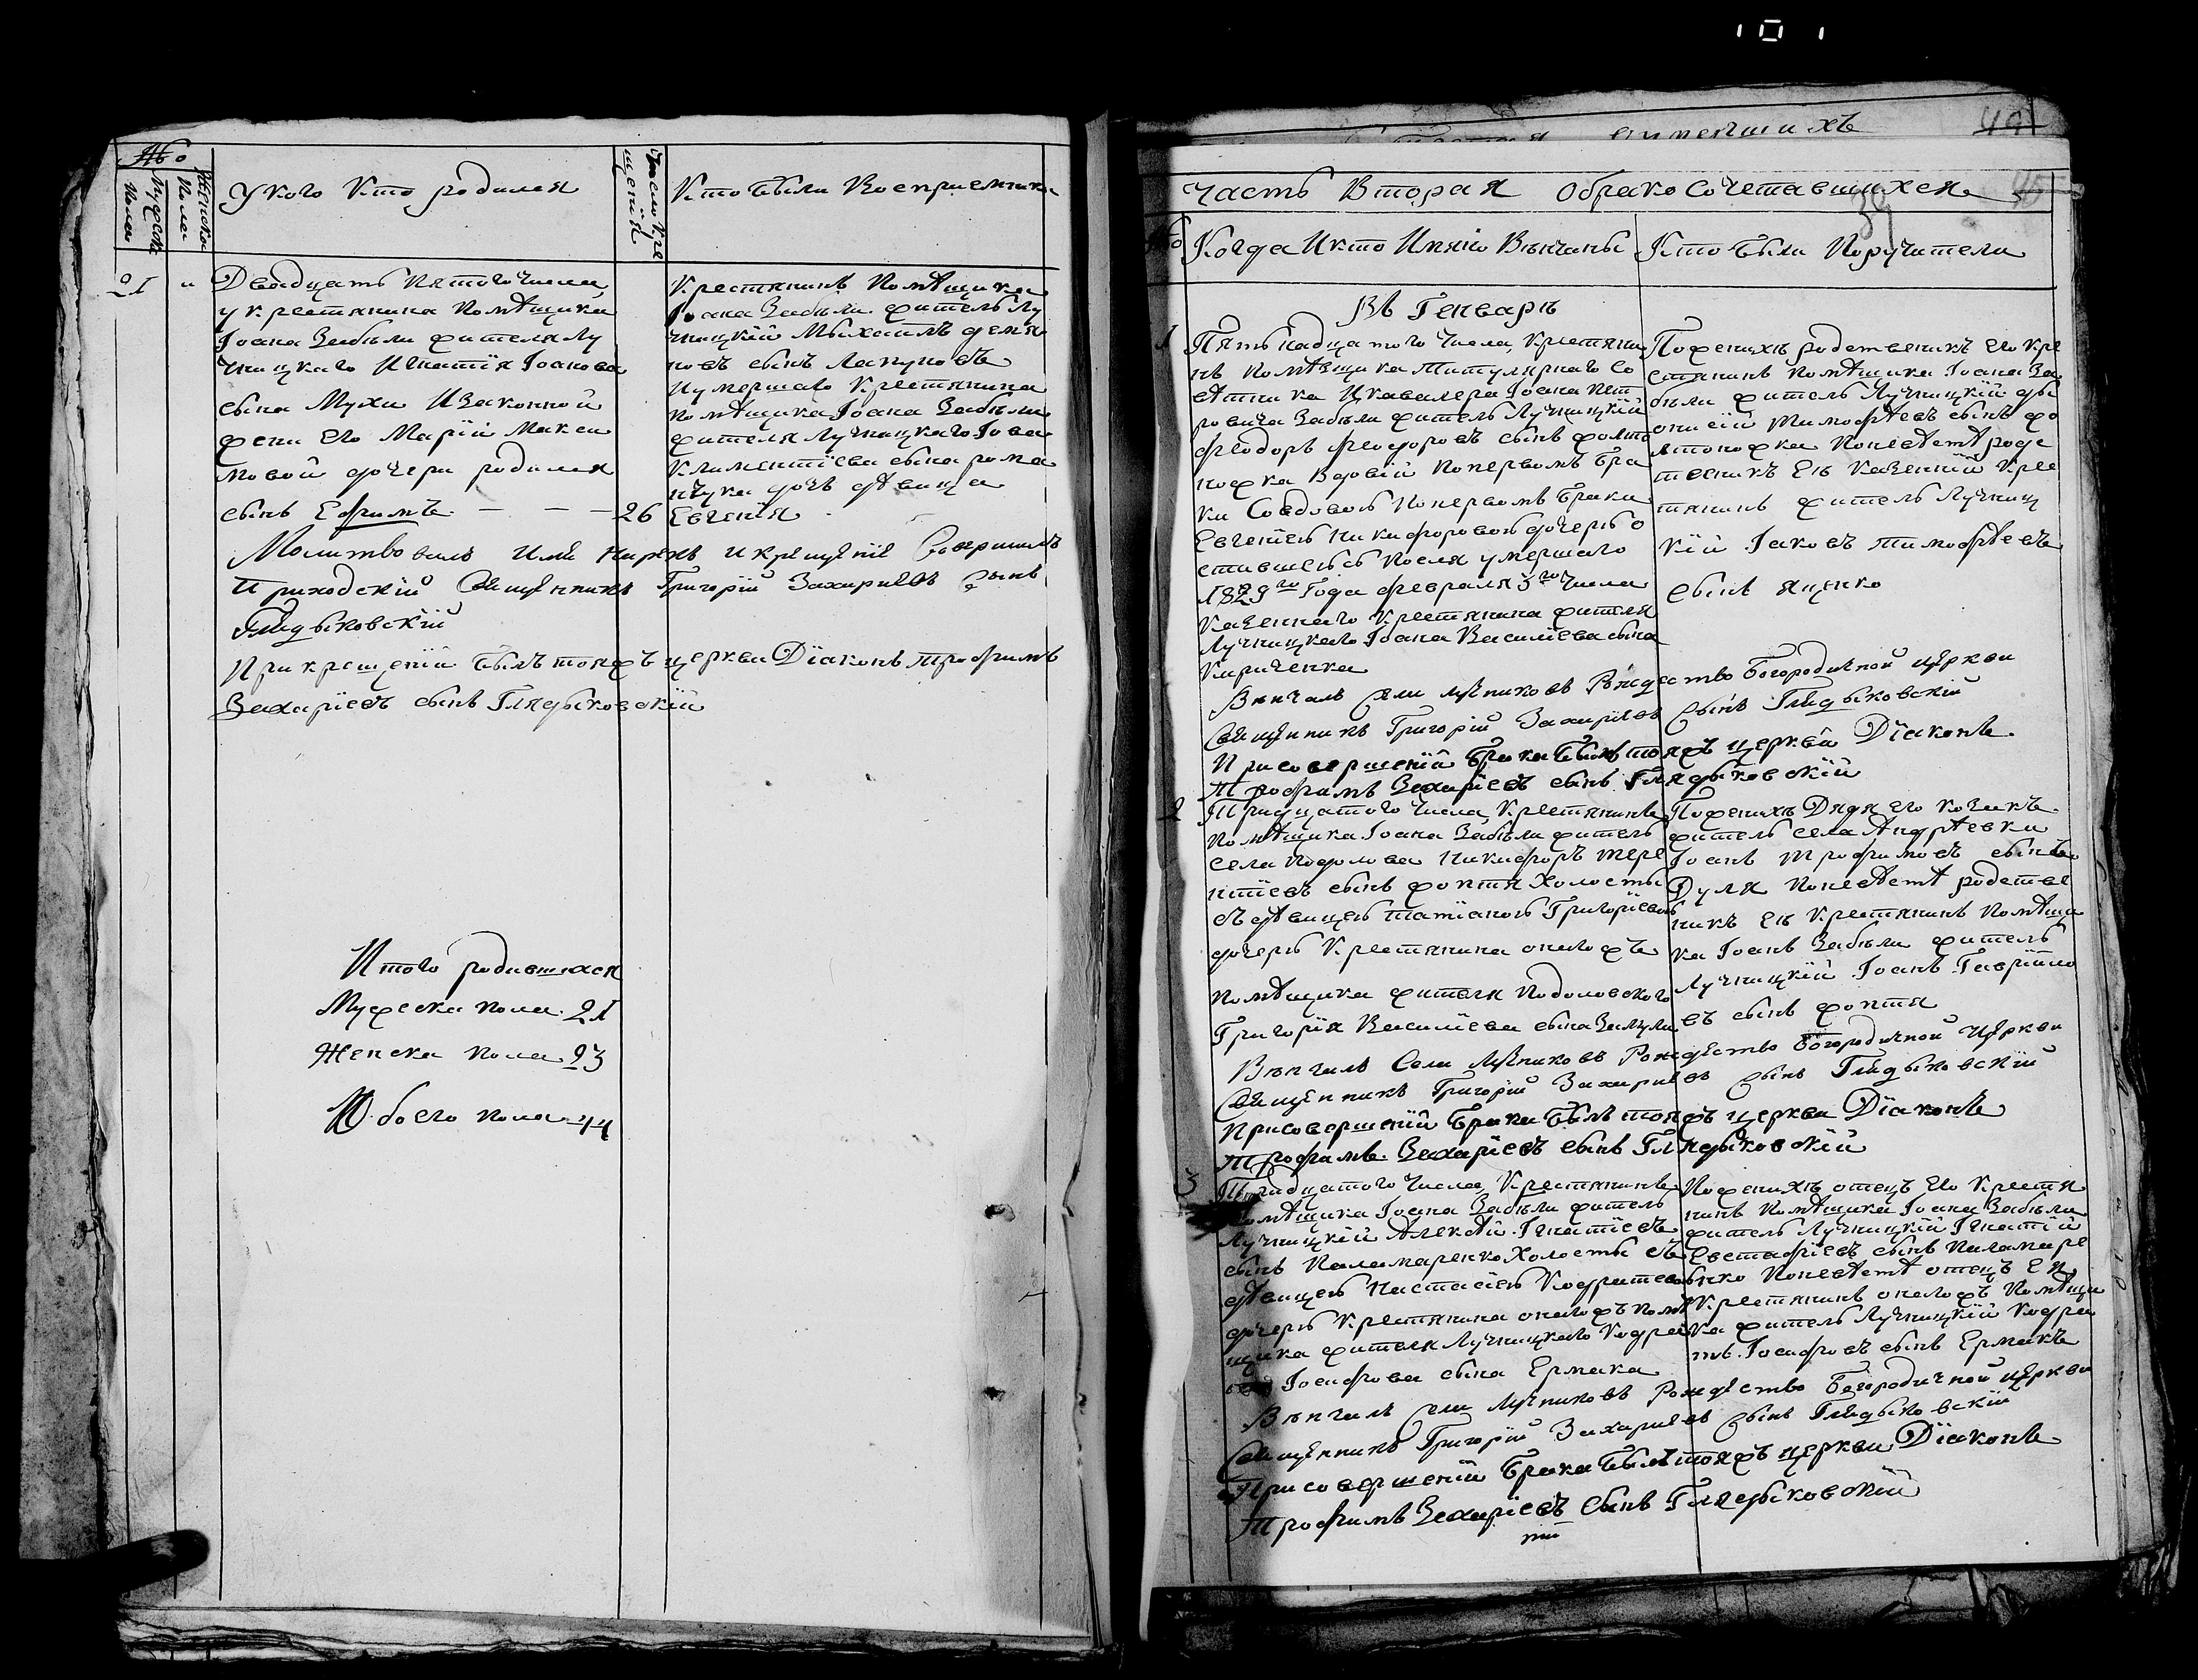 101
49
№
Мужеска пола
Женска пола
У кого Кто родился
Число крещенїя
Кто были Восприемники
21
"
Двадцать пятого числа
у крестянина помѣщика
Іоана Забѣли жителя Лу
чницкаго Игнатїя Іоанова
сына Мухи Изаконной
жени его Марїи Макси
мовой дочери родился
сынъ Ефимъ — — — 26
Крестянинъ помѣщика
Іоана Забѣли житель Лу
чницкїй Мыхаилъ демя
новъ сынъ Лапуновъ
Иумершаго крестянина
помѣщика Іоана Забѣли
жителя Лучницкаго Іова
Климентїева сына рома
нчука дочь дѣвица
Евгенїя
Молитвовалъ Имя нарекъ и крещенїе Совершилъ
Приходскїй Священникъ Григорїй Захарїевъ Сынъ
Глядыковскїй
При крещенїи былъ тояжъ церкви Дїаконъ трофимъ
Захарїевъ сынъ Глядыковскїй
Итого родившихся
Мужеска пола 21
Женска пола 23
Обоего пола 44
Часть Вторая Обракосочетавшихся
39
№
Когда Икто Имяно Венчаны
Кто были Поручители
Въ Генваръ
1
Пятьнадцатого числа, крестяни
нъ помѣщика титулярнаго Со
вѣтника Икавалера Іоана Пет
ровича Забѣли житель Лучницкїй
феодоръ феодоровъ сынъ
Вдовїй поперъвомъ бра
ки Совдовою поперъвомъ браки
Евгенїею Никифоровою дочерью о
ставшеюсь посля умершаго
1829го Года февраля 5го числа
казеннаго крестянина жителя
Лучницкаго Іоана Василїева сына
Кириченка
Поженихъ родственикъ его кре
стянинъ помѣщика Іоана За
бѣли житель Лучницкїй
тимофѣевъ сынъ
Поневѣстѣ родс
твеникъ ея казеннїй крес
тянинъ житель Лучниц
кїй Іаковъ тимофѣевъ
сынъ яценко
Венчалъ Села Лучниковъ Рождество Богородичной церкви
Священникъ Григорїй Захарїевъ Сынъ Глядыковскїй
Присовершенїи брака былъ тояжъ церкви Дїаконъ
Трофимъ Захарїевъ сынъ Глядыковскїй
2
Тридцатого числа, крестянинъ
помѣщика Іоана Забѣли житель
села подолова Никифоръ тере
нтїевъ сынъ жоптя Холостый
съ дѣвицею татїаною Григорїевою
дочерью крестянина оногожъ
помѣщика жителя подоловского
Григорїя Василїева сына
Поженихъ Дядя его козакъ
житель села Андрѣевки
Іоанъ трофимовъ сынъ
Дуля поневѣстѣ родстве
никъ ея крестянинъ помѣщи
ка Іоанъ Забѣли житель
Лучницкїй Іоанъ Гаврїило
въ сынъ жоптя
Венчалъ Села Лучниковъ Рождество Богородичной церкви
Священникъ Григорїй Захарїевъ Сынъ Глядыковскїй
Присовершенїи брака былъ тояжъ церкви Дїаконъ
Трофимъ Захарїевъ сынъ Глядыковскїй
3
Тридцатого числа, крестянинъ
помѣщика Іоана Забѣли житель
Лучницкїй Алексѣй Игнатїевъ
сынъ Паламаренко Холостый съ
дѣвицею Настасїею Кодратовою
дочерью крестянина оногожъ помѣ
щика жителя Лучницкаго Кодра
Іосифова сына Ермака
Поженихъ отецъ его крестя
нинъ помѣщика Іоана Забѣли
житель Лучницкїй Игнатїй
Евстафїевъ сынъ Паламаре
нко поневѣстѣ отецъ ея
крестянинъ оногожъ помѣщи
ка житель Лучницкїй Кодра
тъ Іосифовъ сынъ Ермакъ
Венчалъ Села Лучниковъ Рождество Богородичной церкви
Священникъ Григорїй Захарїевъ Сынъ Глядыковскїй
Присовершенїи брака былъ тояжъ церкви Дїаконъ
Трофимъ Захарїевъ сынъ Глядыковскїй